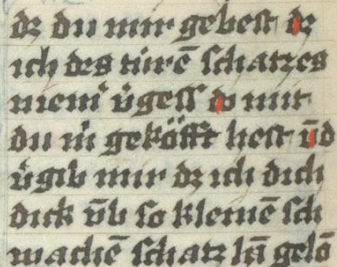 dz du mir gebest dz
ich des türē schatzes
niem̄ v̄gess do mit
du m̄ geköfft hest v̄d
v̄gib mir dz ich dich
dick v̄b so kleinē sch
wachē schatz hā gelō